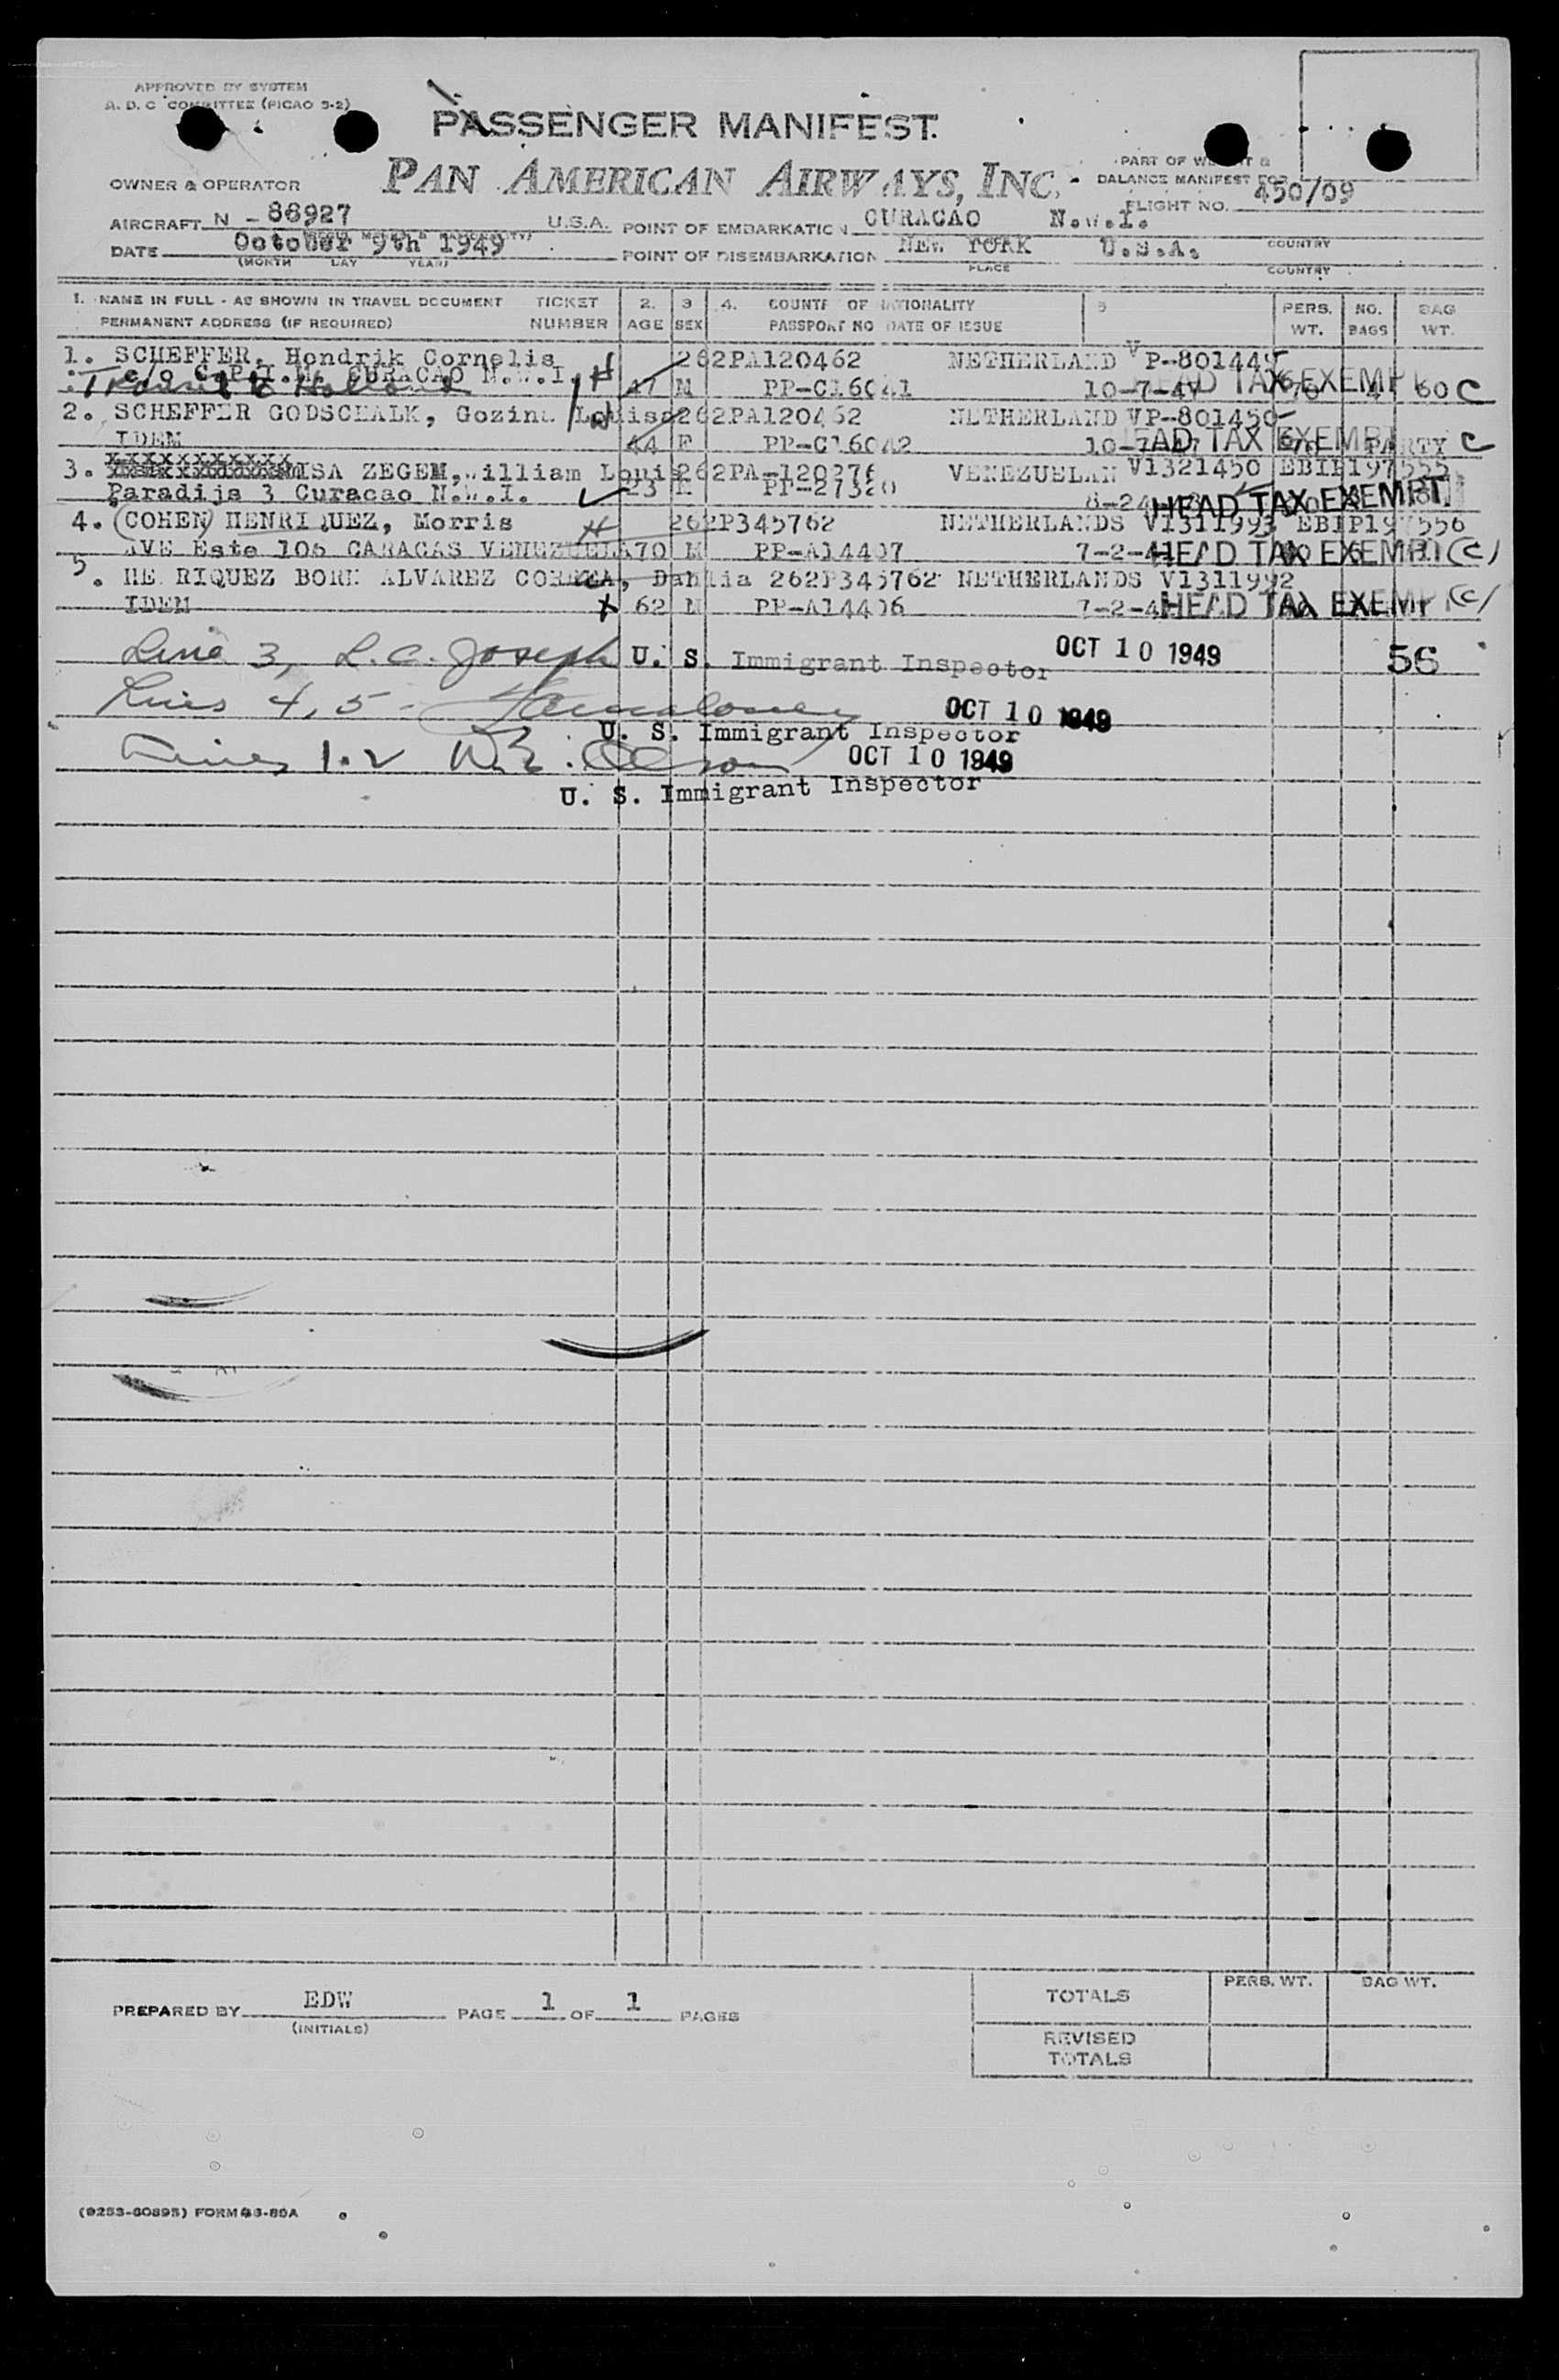 APPROVED BY SYSTEM
A. D. C COMMITTEE (PICAO 5-2)
PASSENGER MANIFEST
PAN AMERICAN AIRWAYS, INC.
PART OF WEIGHT &
BALANCE MANIFEST FOR
OWNER & OPERATOR
FLIGHT NO. 450/09
AIRCRAFT N - 88927 U.S.A. POINT OF EMBARKATION CURACAO N.W.I.
COUNTRY
DATE October 9th 1949 POINT OF DISEMBARKATION NEW YORK U.S.A.
(MONTH DAY YEAR) PLACE COUNTRY
1. NAME IN FULL - AS SHOWN IN TRAVEL DOCUMENT TICKET 2. 3 4. COUNTRY OF NATIONALITY 5 PERS. NO. BAG
PERMANENT ADDRESS (IF REQUIRED) NUMBER AGE SEX PASSPORT NO DATE OF ISSUE WT. BAGS WT.
1. SCHEFFER, Hendrik Cornelis 262PA120462 NETHERLAND VP-801449
c/o C.P.I.M. CURACAO N.W.I. H 47 M PP-C16041 10-7-47 HEAD TAX EXEMPT 4 60 C
Transit to Holland
2. SCHEFFER GODSCHALK, Gozina Louisa 262PA120462 NETHERLAND VP-801450
IDEM 44 F PP-C16042 10-7-47 HEAD TAX EXEMPT PARTY C
XXXXXXXXXXX
3. MISA ZEGEM, William Louis 262PA-120276 VENEZUELAN V1321450 EBIP197555
Paradijs 3 Curacao N.W.I. 23 M PP-27320 8-24 HEAD TAX EXEMPT
4. (COHEN) HENRIQUEZ, Morris H 262P345762 NETHERLANDS V1311993 EBIP197556
AVE Este 106 CARACAS VENEZUELA 70 M PP-A14407 7-2-4 HEAD TAX EXEMPT (C)
5. HENRIQUEZ BORN ALVAREZ CORREA, Dahlia 262P345762 NETHERLANDS V1311992
IDEM 62 M PP-A14406 7-2-4 HEAD TAX EXEMPT (C)
Line 3, L.C. Joseph U. S. Immigrant Inspector OCT 10 1949 56
Lines 4, 5 - OCT 10 1949
U. S. Immigrant Inspector
Lines 1.2 W.E. Olson OCT 10 1949
U. S. Immigrant Inspector
PREPARED BY EDW PAGE 1 OF 1 PAGES
(INITIALS)
TOTALS PERS. WT. BAG WT.
REVISED
TOTALS
(9253-60895) FORM 43-80A